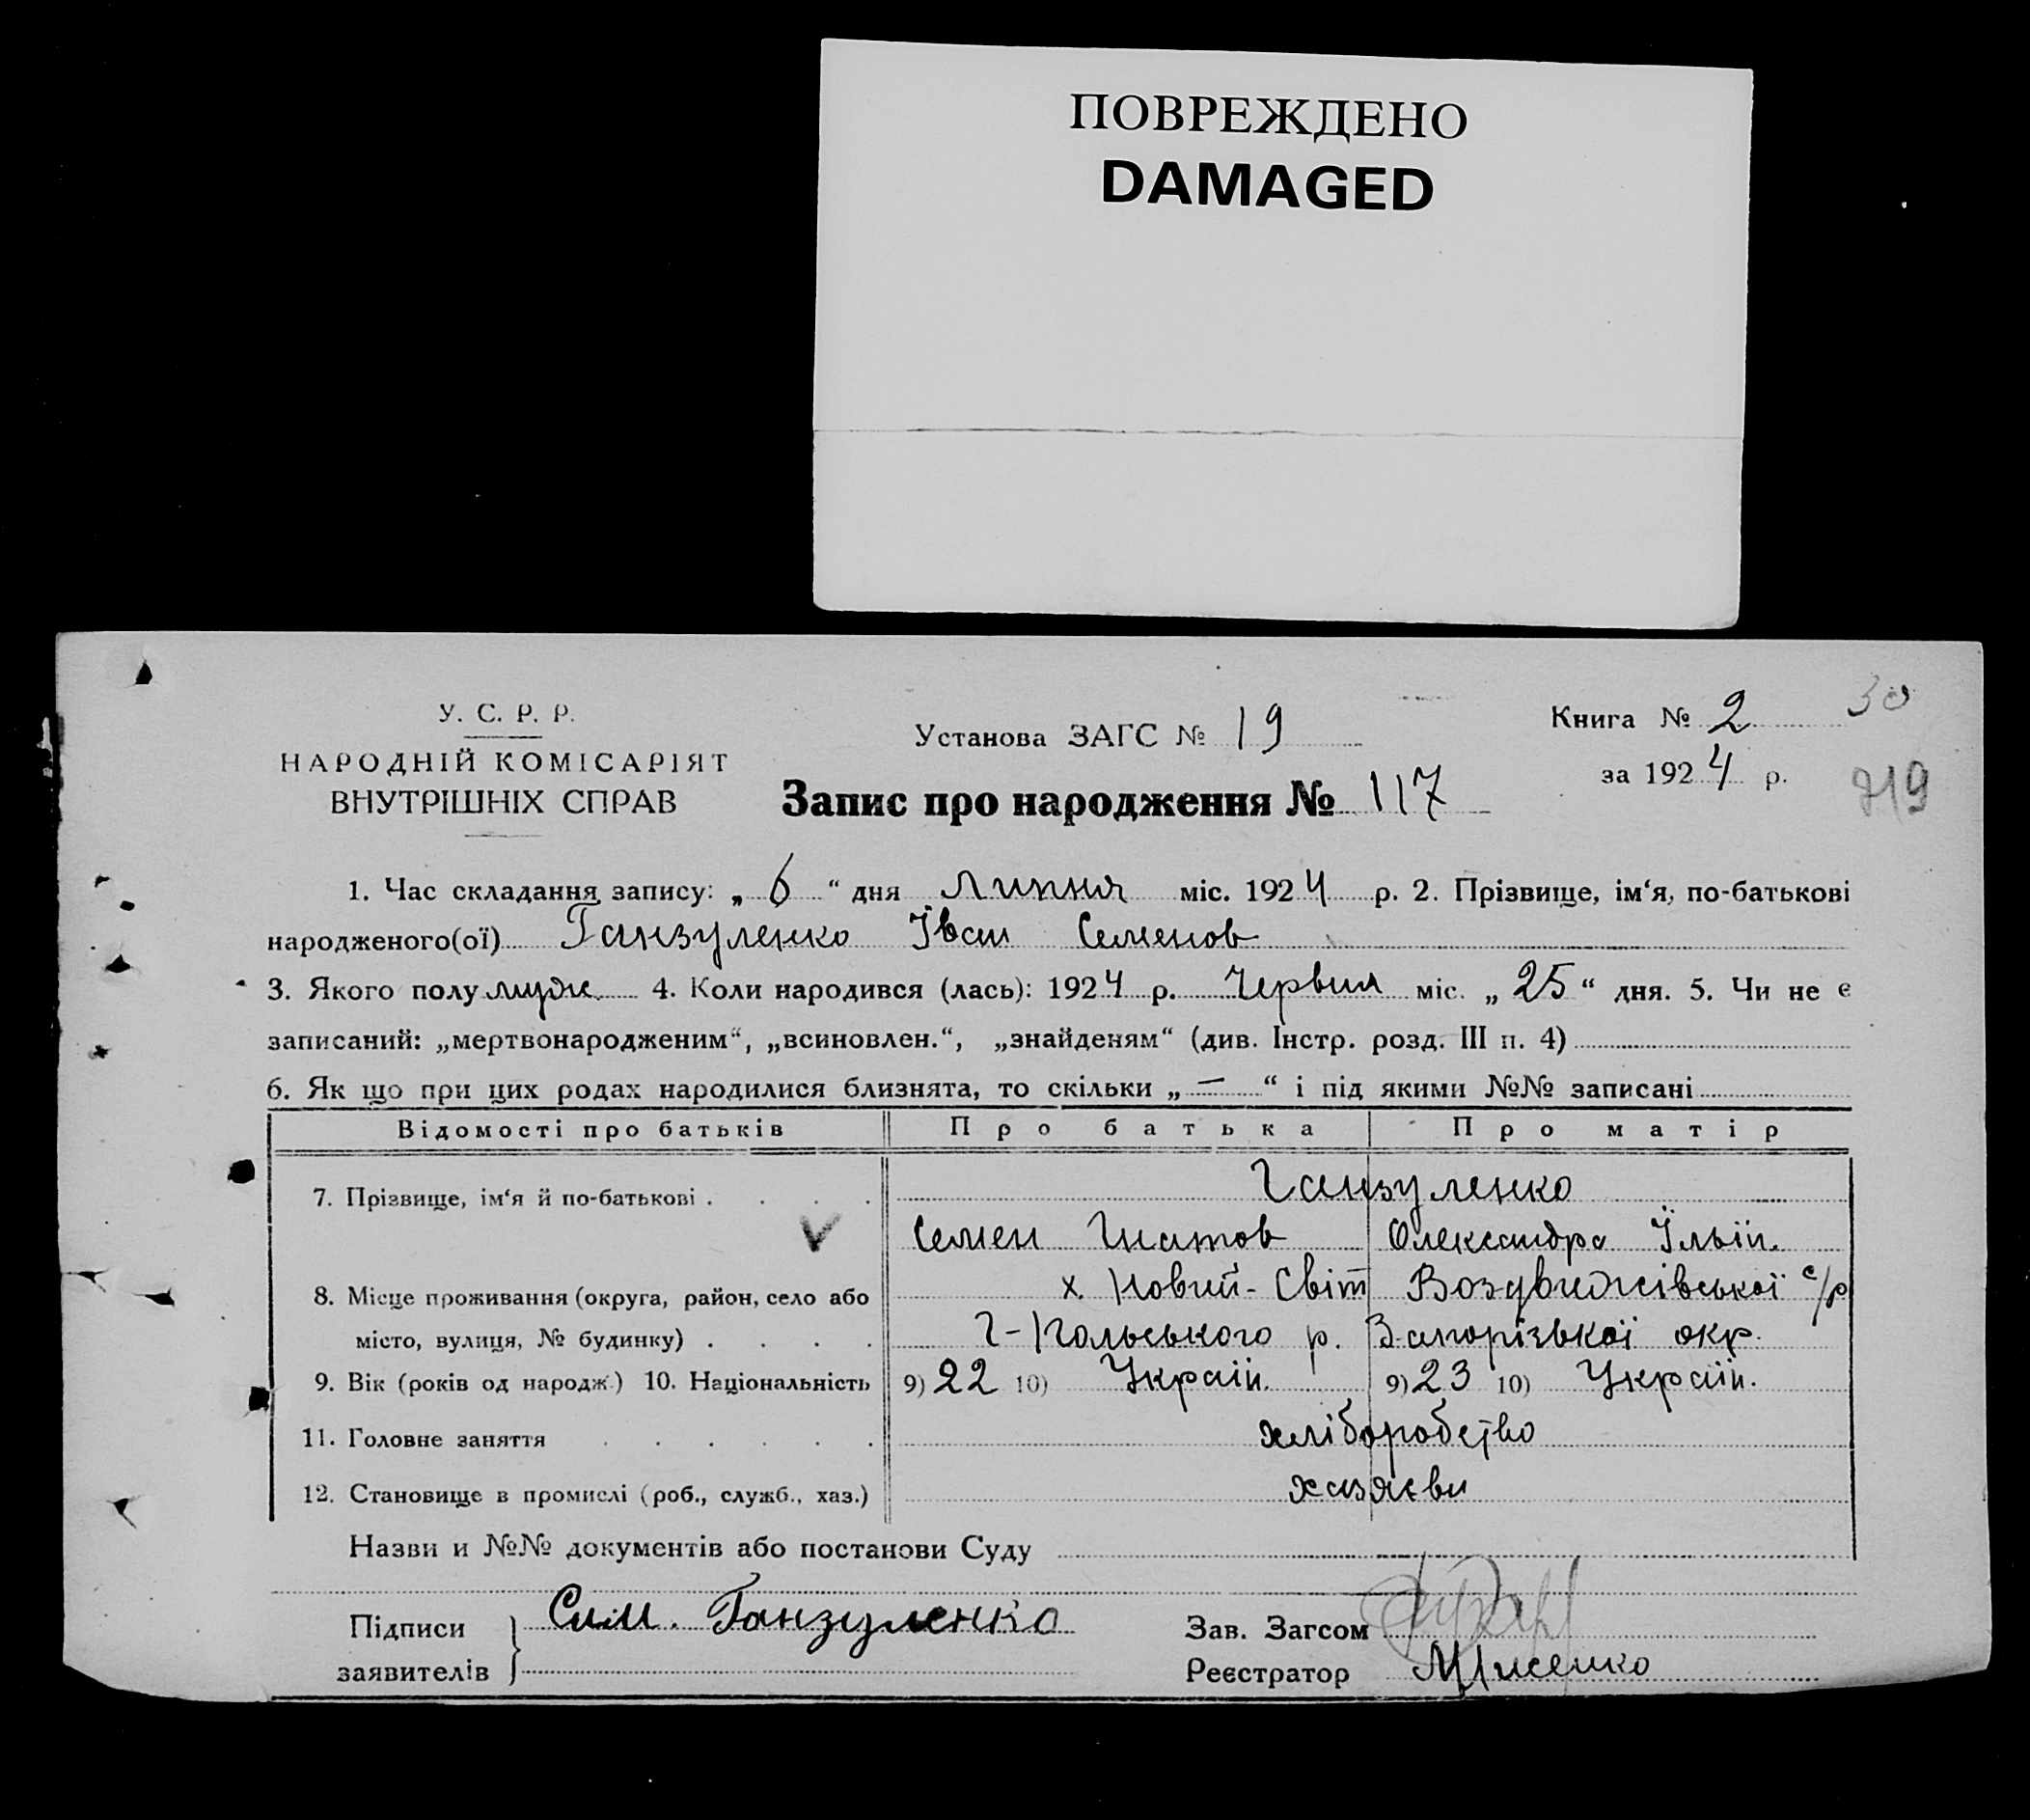 ПОВРЕЖДЕНО
DAMAGED
У. С. Р. Р.
НАРОДНІЙ КОМІСАРІЯТ
ВНУТРІШНІХ СПРАВ
Установа ЗАГС № 19
Запис про народження № 117
Книга № 2
30
за 1924 р.
1. Час складання запису: „ 6 “ дня Липня міс. 1924 р. 2. Прізвище, ім‘я, по-батькові
народженого(ої) Ганзуленко Іван Семенов
3. Якого полу муж. 4. Коли народився (лась): 1924 р. Червня міс. „ 25 “ дня. 5. Чи не є
записаний: „мертвонародженим“, „всиновлен.“, „знайденям“ (див. Інстр. розд. III п. 4)
6. Як що при цих родах народилися близнята, то скільки „ — “ і під якими №№ записані
Відомості про батьків Про батька Про матір
7. Прізвище, ім‘я й по-батькові . . . . Ганзуленко
Семен Гнатов Олександра Ільїн.
8. Місце проживання (округа, район, село або х. Новий-Світ Воздвижівської с/р
місто, вулиця, № будинку) . . . . р. Запорізької окр.
9. Вік (років од народж.) 10. Національність 9) 22 10) Украін. 9) 23 10) Украін.
11. Головне заняття . . . . . . хліборобство
12. Становище в промислі (роб., служб., хаз.) хазяєви
Назви и №№ документів або постанови Суду
Підписи Сим. Ганзуленко Зав. Загсом
заявителів Реєстратор